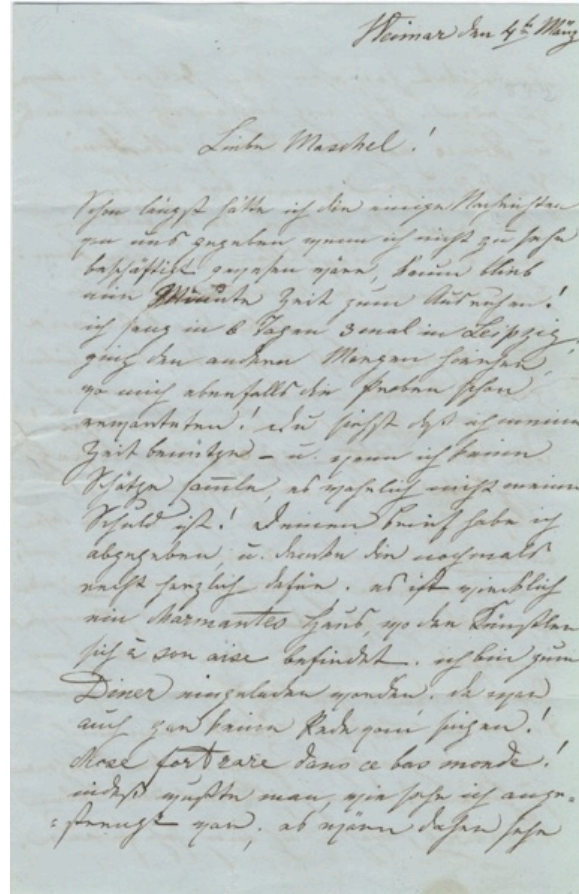 Weimar den 4ten März
Liebe Maschel!
Schon längst hätte ich dir einige Nachrichten
von uns gegeben wenn ich nicht zu sehr
beschäftigt gewesen wäre, kaum blieb
mir Minute Zeit zum Ausruhen!
ich sang in 8 Tagen 3 mal in Leipzig,
ging den andern Morgen hierher,
wo mich ebenfalls die Proben schon
erwarteten! du siehst daß ich meine
Zeit benütze – u. wenn ich keine
Schätze samle, es wahrlich nicht meine
Schuld ist! Deinen Brief habe ich
abgegeben, u. danke dir nochmals
recht herzlich dafür. es ist wirklich
ein charmantes Haus, wo der Künstler
sich à son aise befindet. ich bin zum
Diner eingeladen worden. da war
auch gar keine Rede vom singen!
chose fort rare dans ce bas monde!
indeß wußte man, wie sehr ich ange-
=strengt war, es wäre daher sehr